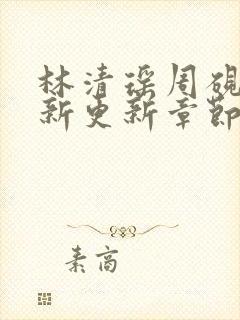 林清瑶周砚
新更新章节
素高